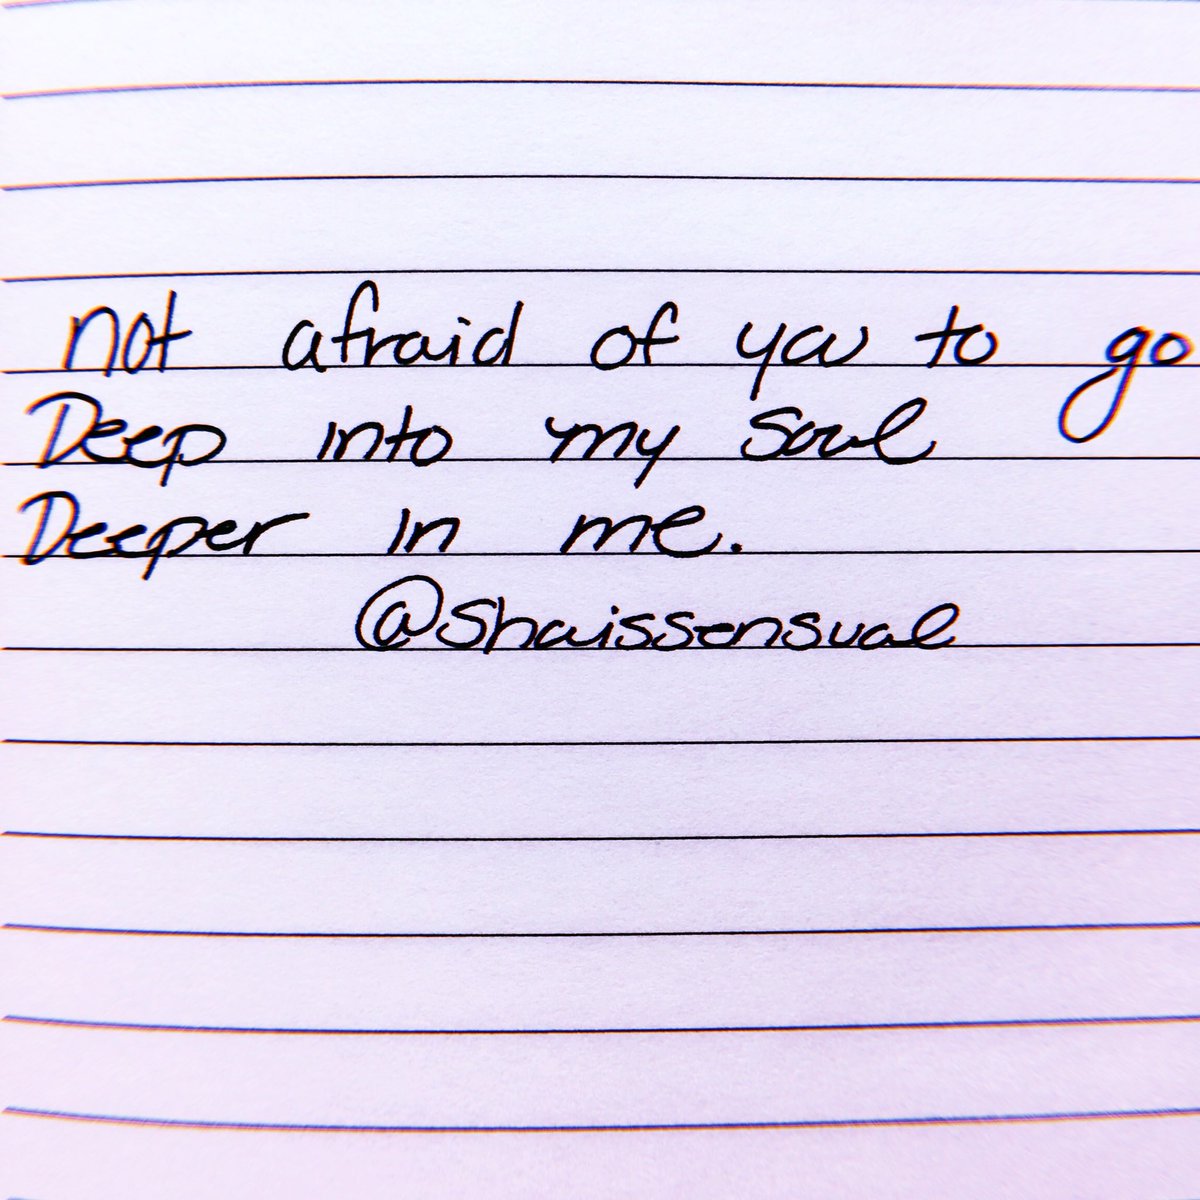 not afraid of you to go
Deep into my soul
Deeper in me.
@shaissensual